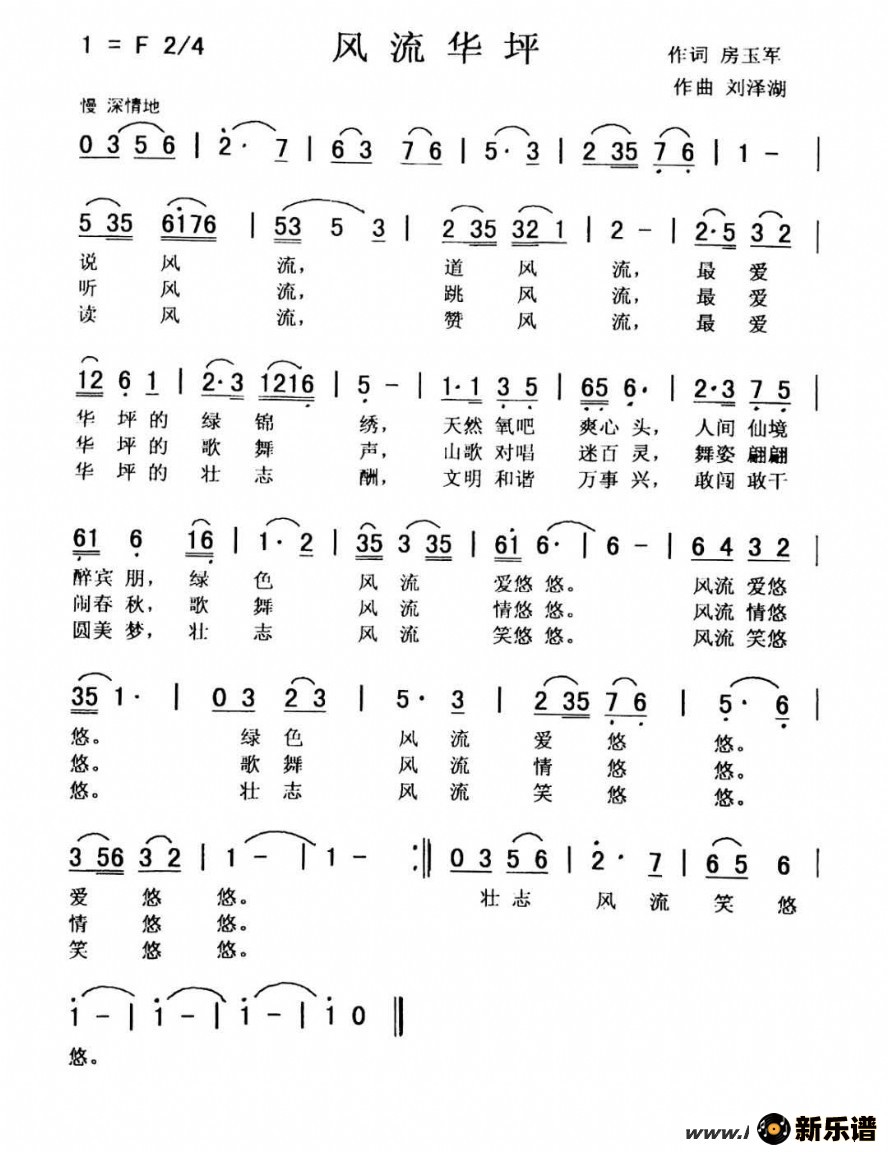 1 = F 2/4 风流华坪 作词 房玉军
作曲 刘泽湖
慢 深情地
0 3 5 6 | 2· 7 | 6 3 7 6 | 5· 3 | 2 35 7 6 | 1 - |
5 35 6176 | 53 5 3 | 2 35 32 1 | 2 - | 2·5 3 2 |
说 风 流, 道 风 流, 最 爱
听 风 流, 跳 风 流, 最 爱
读 风 流, 赞 风 流, 最 爱
12 6 1 | 2·3 1216 | 5 - | 1·1 3 5 | 65 6· | 2·3 7 5 |
华 坪 的 绿 锦 绣, 天然 氧吧 爽心 头, 人间 仙境
华 坪 的 歌 舞 声, 山歌 对唱 迷百 灵, 舞姿 翩翩
华 坪 的 壮 志 酬, 文明 和谐 万事 兴, 敢闯 敢干
61 6 16 | 1· 2 | 35 3 35 | 61 6· | 6 - | 6 4 3 2 |
醉宾 朋, 绿 色 风 流 爱悠 悠。 风流 爱悠
闹春 秋, 歌 舞 风 流 情悠 悠。 风流 情悠
圆美 梦, 壮 志 风 流 笑悠 悠。 风流 笑悠
35 1· | 0 3 2 3 | 5· 3 | 2 35 7 6 | 5· 6 |
悠。 绿 色 风 流 爱 悠 悠。
悠。 歌 舞 风 流 情 悠 悠。
悠。 壮 志 风 流 笑 悠 悠。
3 56 3 2 | 1 - | 1 - :|| 0 3 5 6 | 2· 7 | 6 5 6 |
爱 悠 悠。 壮 志 风 流 笑 悠
情 悠 悠。
笑 悠 悠。
1 - | 1 - | 1 - | 1 0 ||
悠。
www.l 新乐谱